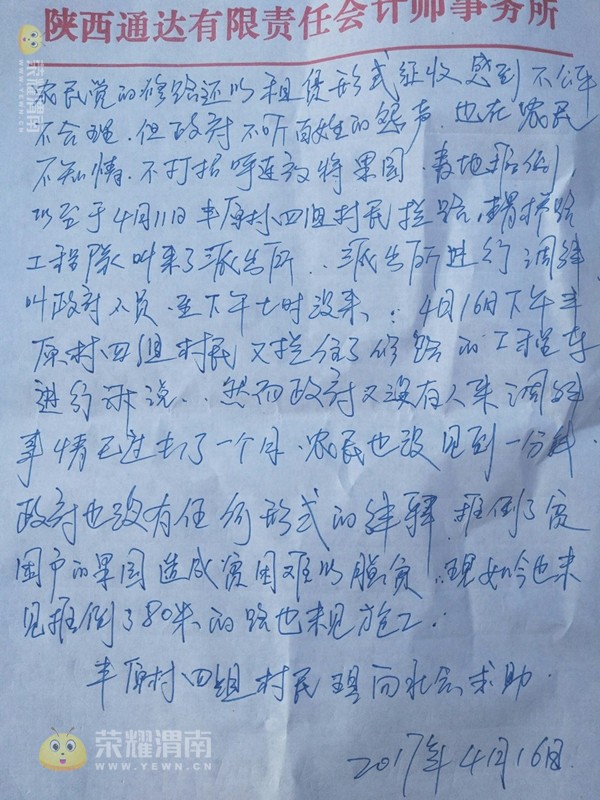 陕西通达有限责任会计师事务所
荣耀渭南
WWW.YEWN.CN
农民党的修路还以租凭形式征收感到不公平
不合理.但政府不听百姓的怨声.也在农民
不知情.不打招呼连夜将果园.麦地推倒,
以至于4月11日丰原村四组村民拦路.
工程队叫来了派出所..派出所进行调解
叫政府人员.至下午七时没来.:4月16日下午丰
原村四组村民又拦住了修路的工程车
进行诉说..然而政府又没有人来调解
事情已过去了一个月.农民也没见到一分钱.
政府也没有任何形式的解释.推倒了贫
困户的果园造成贫困难以脱贫.现如今也未
见推倒了80米的路也未见施工.
丰原村四组村民现向社会求助.
2017年4月16日.
荣耀渭南
WWW.YEWN.CN